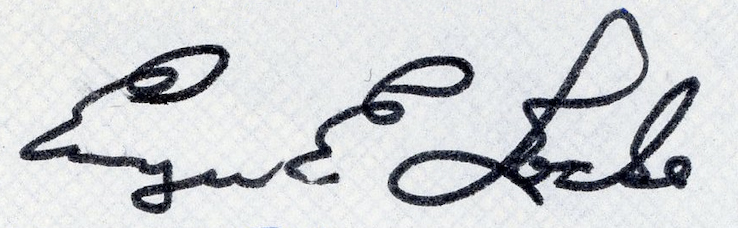 Eugene Locke